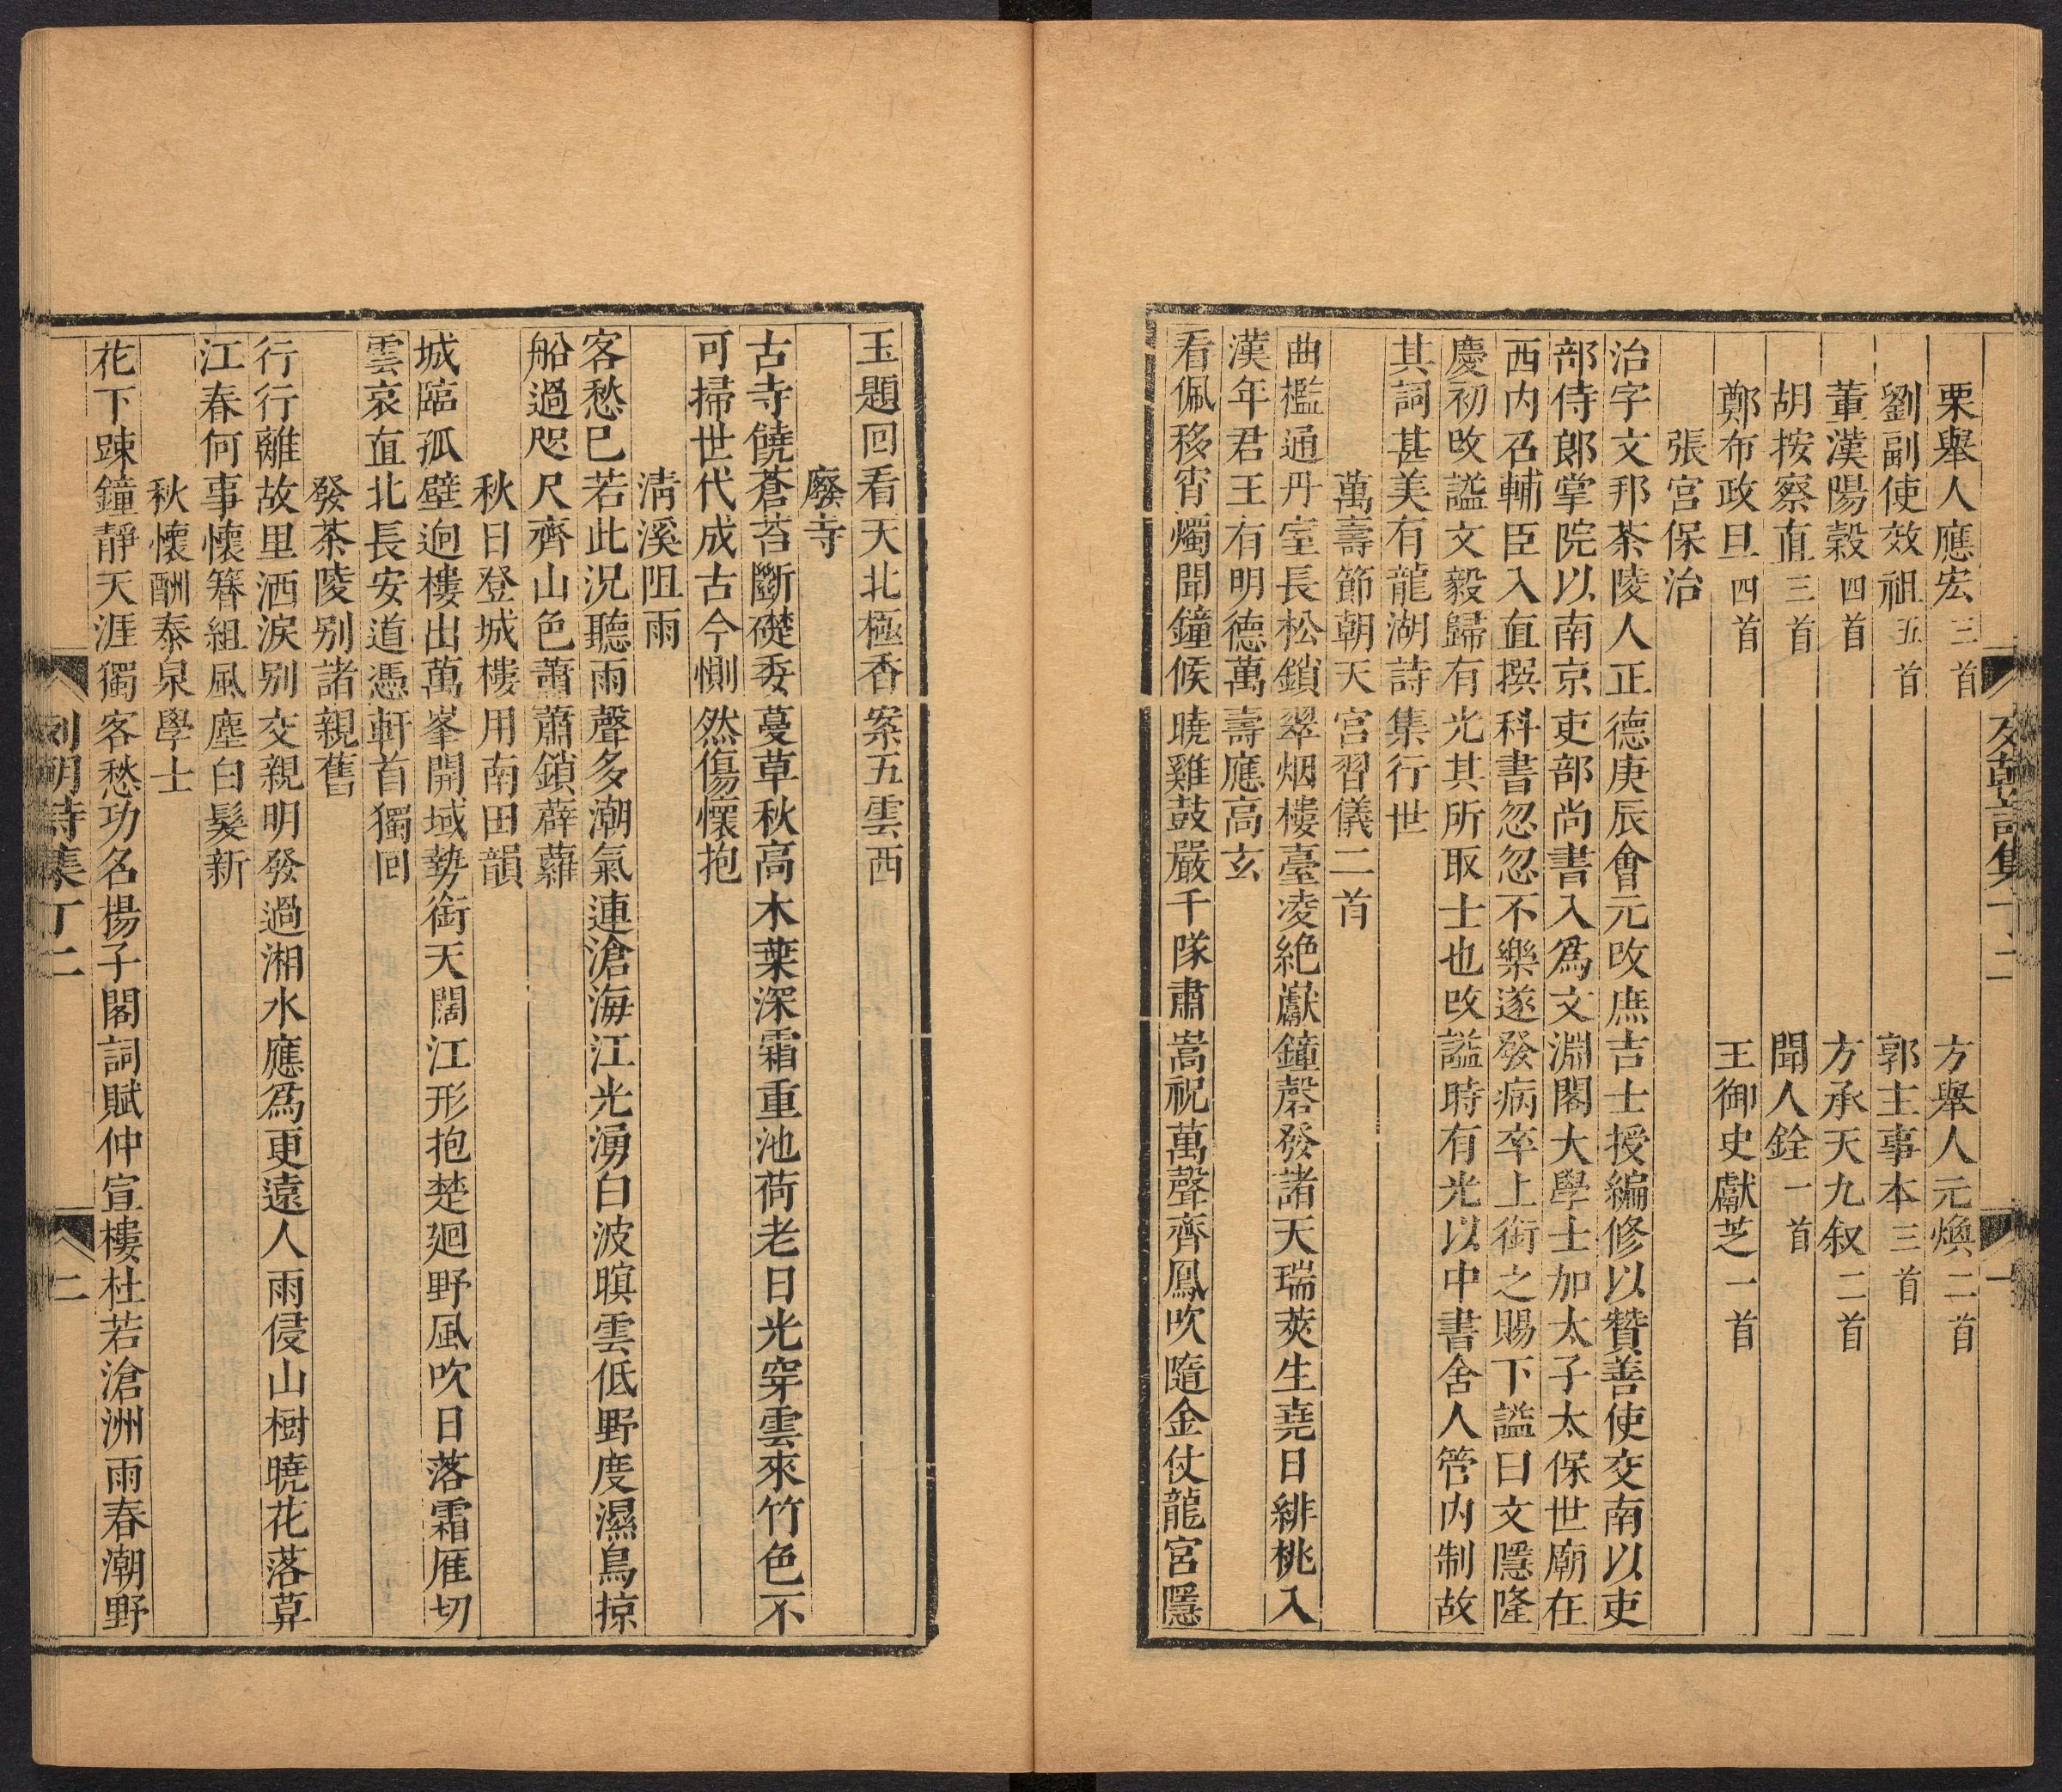 栗舉人應宏三首　方舉人元煥二首
劉副使效祖五首　郭主事本三首
董漢陽穀四首　方承天九叙二首
胡按察直三首　聞人銓一首
鄭布政旦四首　王御史獻芝一首
張宮保治
治字文邦茶陵人正德庚辰會元改庶吉士授編修以贊善使交南以吏
部侍郎掌院以南京吏部尚書入爲文淵閣大學士加太子太保世廟在
西内召輔臣入直撰科書忽忽不樂遂發病卒上銜之賜下諡曰文隱隆
慶初改諡文毅歸有光其所取士也改諡時有光以中書舍人管内制故
其詞甚美有龍湖詩集行世
萬壽節朝天宮習儀二首
曲檻通丹室長松鎖翠烟樓臺凌絶巘鐘磬發諸天瑞莢生堯日緋桃入
漢年君王有明德萬壽應高玄
看佩移宵燭聞鐘候曉雞鼓嚴千隊肅嵩祝萬聲齊鳳吹隨金仗龍宮隱
玉題回看天北極香案五雲西
廢寺
古寺饒蒼苔斷礎委蔓草秋高木葉深霜重池荷老日光穿雲來竹色不
可掃世代成古今惻然傷懷抱
淸溪阻雨
客愁巳若此況聽雨聲多潮氣連滄海江光湧白波暝雲低野度濕鳥掠
船過咫尺齊山色蕭蕭鎖薜蘿
秋日登城樓用南田韻
城臨孤壁迥樓出萬峯開域勢銜天闊江形抱楚廻野風吹日落霜雁切
雲哀直北長安道憑軒首獨回
發茶陵别諸親舊
行行離故里洒淚别交親明發過湘水應爲更遠人雨侵山樹曉花落草
江春何事懷簪組風塵白髮新
秋懷酬泰泉學士
花下踈鐘靜天涯獨客愁功名揚子閣詞賦仲宣樓杜若滄洲雨春潮野
列朝詩集丁二　二